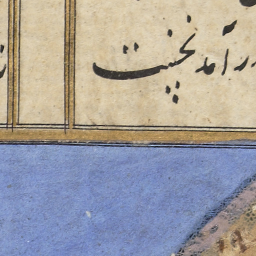 در آمد نخست